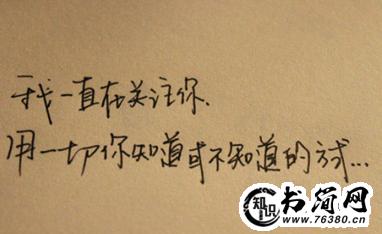 我一直在关注你.
用一切你知道或不知道的方式...
知识
书简网
www.76380.cn